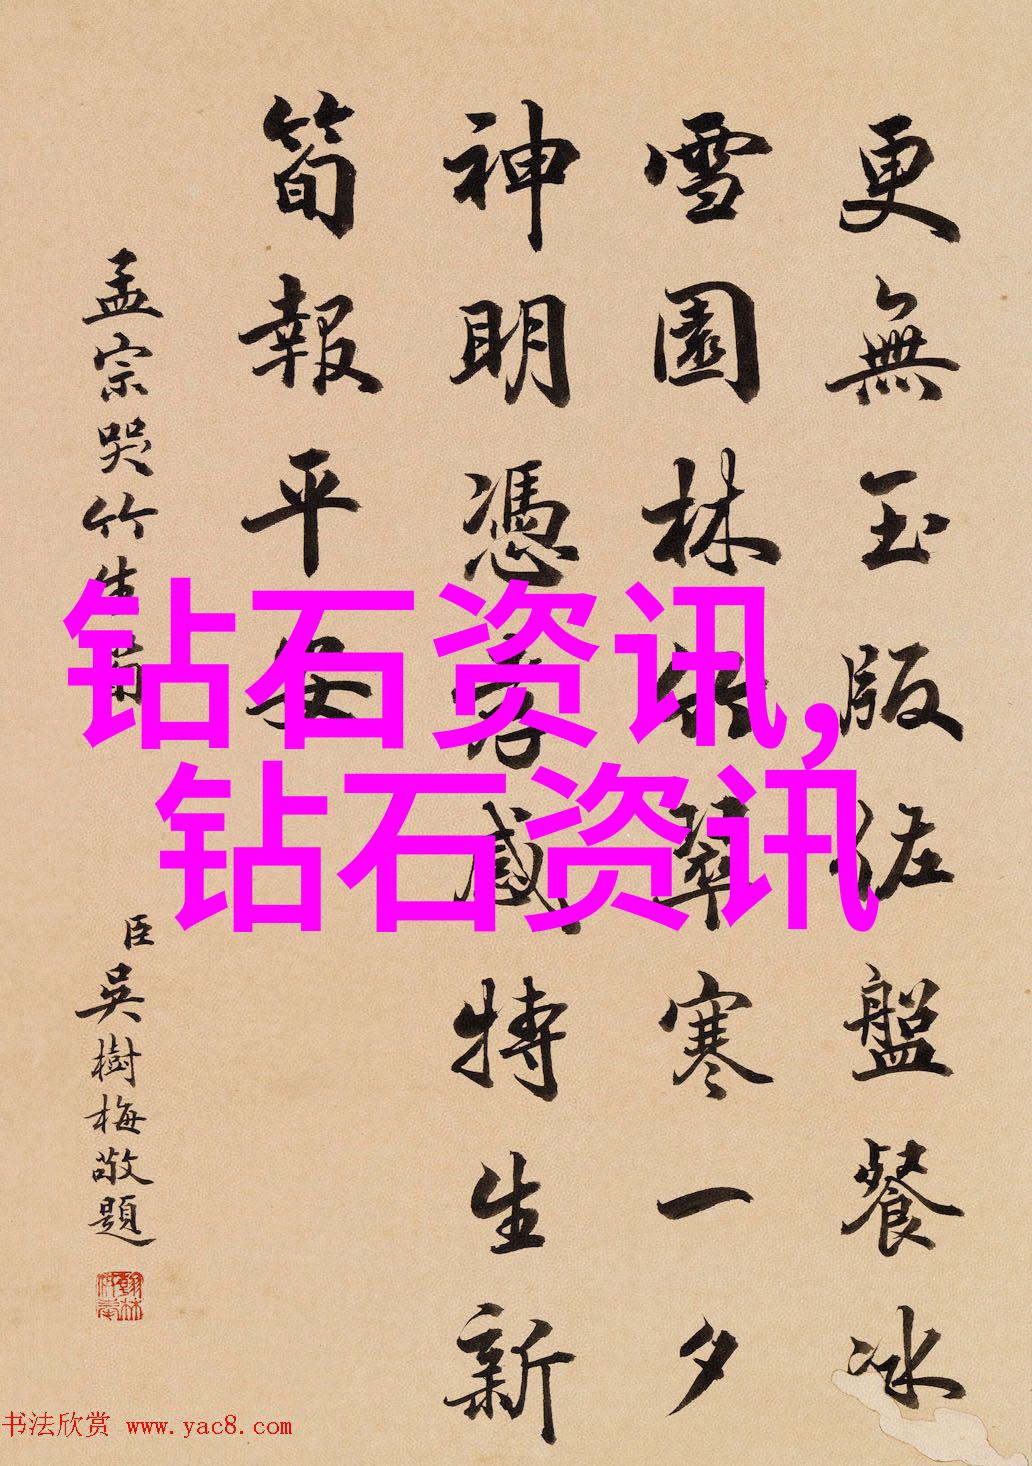 更無玉版佐盤餐冰
雪園林倚翠寒一夕
神明憑孝感特生新
筍報平安
孟宗哭竹生筍
臣吳樹梅敬題
钻石资讯,
钻石资讯
书法欣赏 www.yac8.com